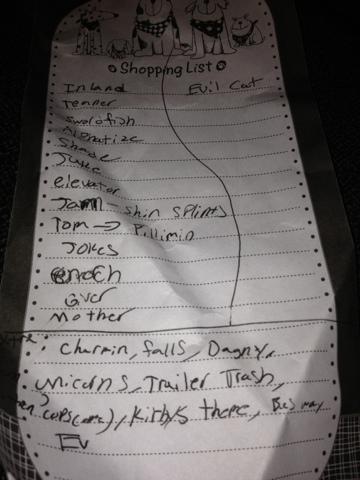 Shopping List
Inland Evil Cat
Tenner
Swordfish
Alphatize
Shade
Juke
elevator
Jamm - shin splints
Tom → Pillimin
Jokes
enoch
Giver
Mother
Charmin, falls, Dagny,
unicorns, Trailer Trash,
cops(care), Kirby's theme, Bus may
EV